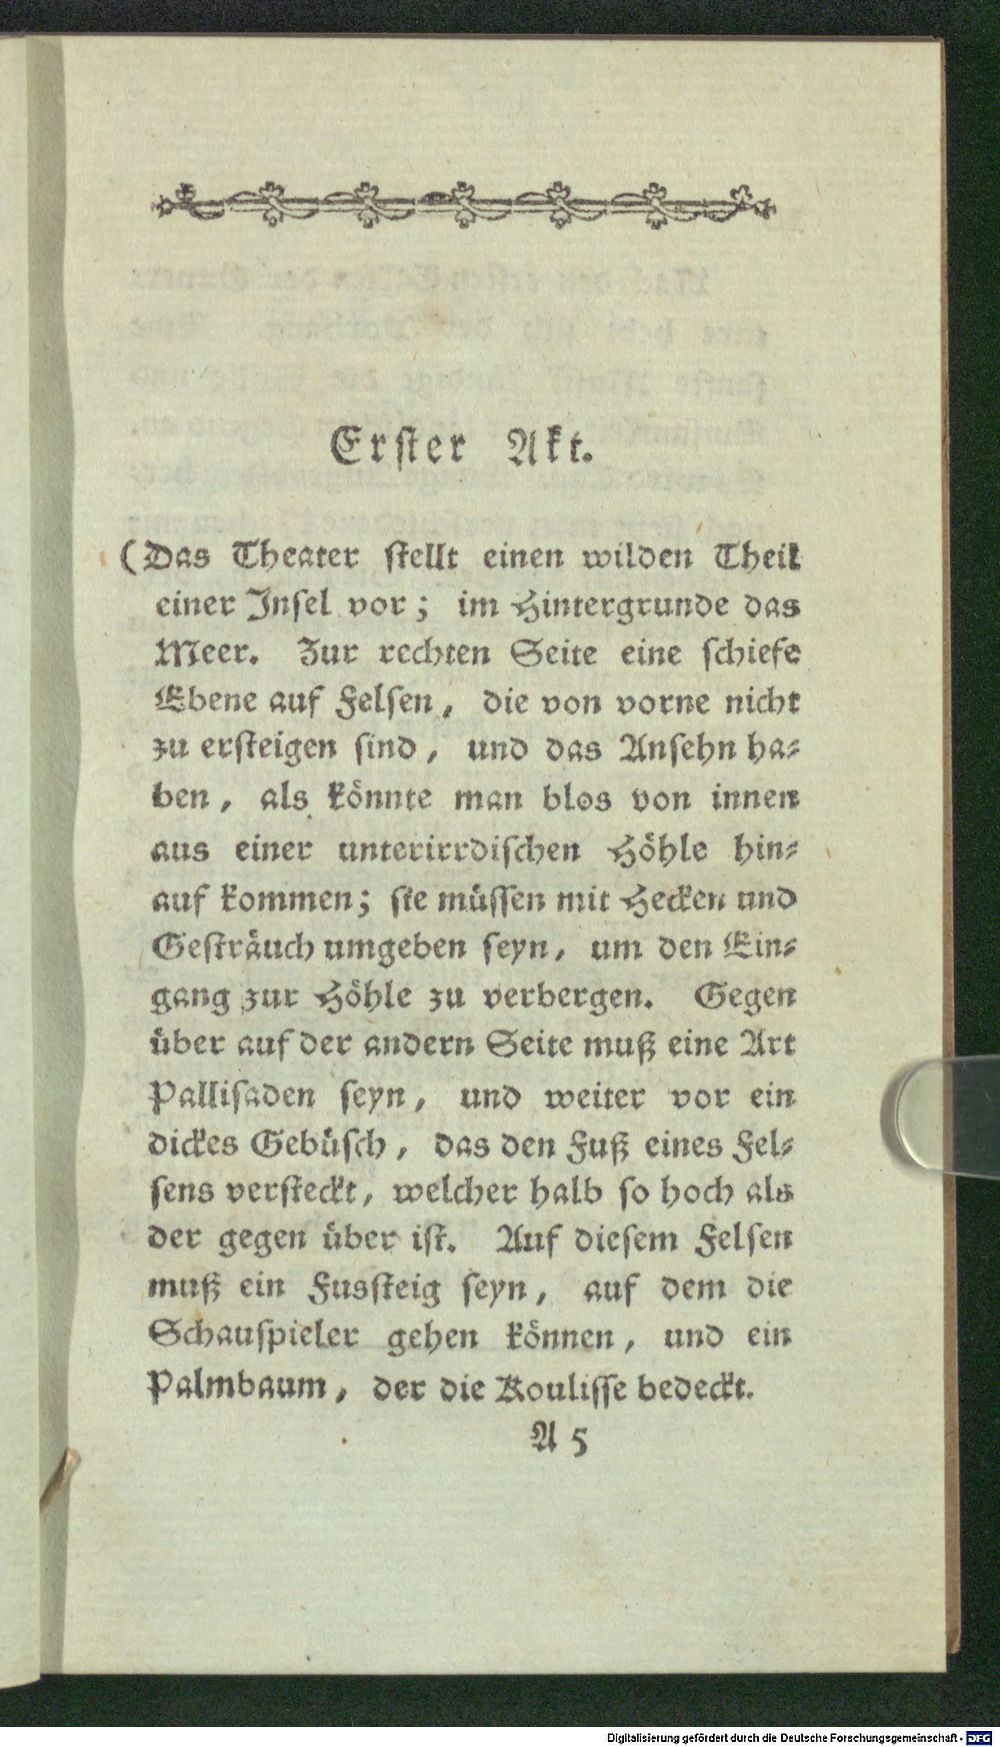 Erster Akt.
(Das Theater stellt einen wilden Theil
einer Insel vor; im Hintergrunde das
Meer. Zur rechten Seite eine schiefe
Ebene auf Felsen, die von vorne nicht
zu ersteigen sind, und das Ansehn ha-
ben, als könnte man blos von innen
aus einer unterirrdischen Höhle hin-
auf kommen; sie müssen mit Hecken und
Gesträuch umgeben seyn, um den Ein-
gang zur Höhle zu verbergen. Gegen
über auf der andern Seite muß eine Art
Pallisaden seyn, und weiter vor ein
dickes Gebüsch, das den Fuß eines Fel-
sens versteckt, welcher halb so hoch als
der gegen über ist. Auf diesem Felsen
muß ein Fussteig seyn, auf dem die
Schauspieler gehen können, und ein
Palmbaum, der die Koulisse bedeckt.
A 5
Digitalisierung gefördert durch die Deutsche Forschungsgemeinschaft - DFG